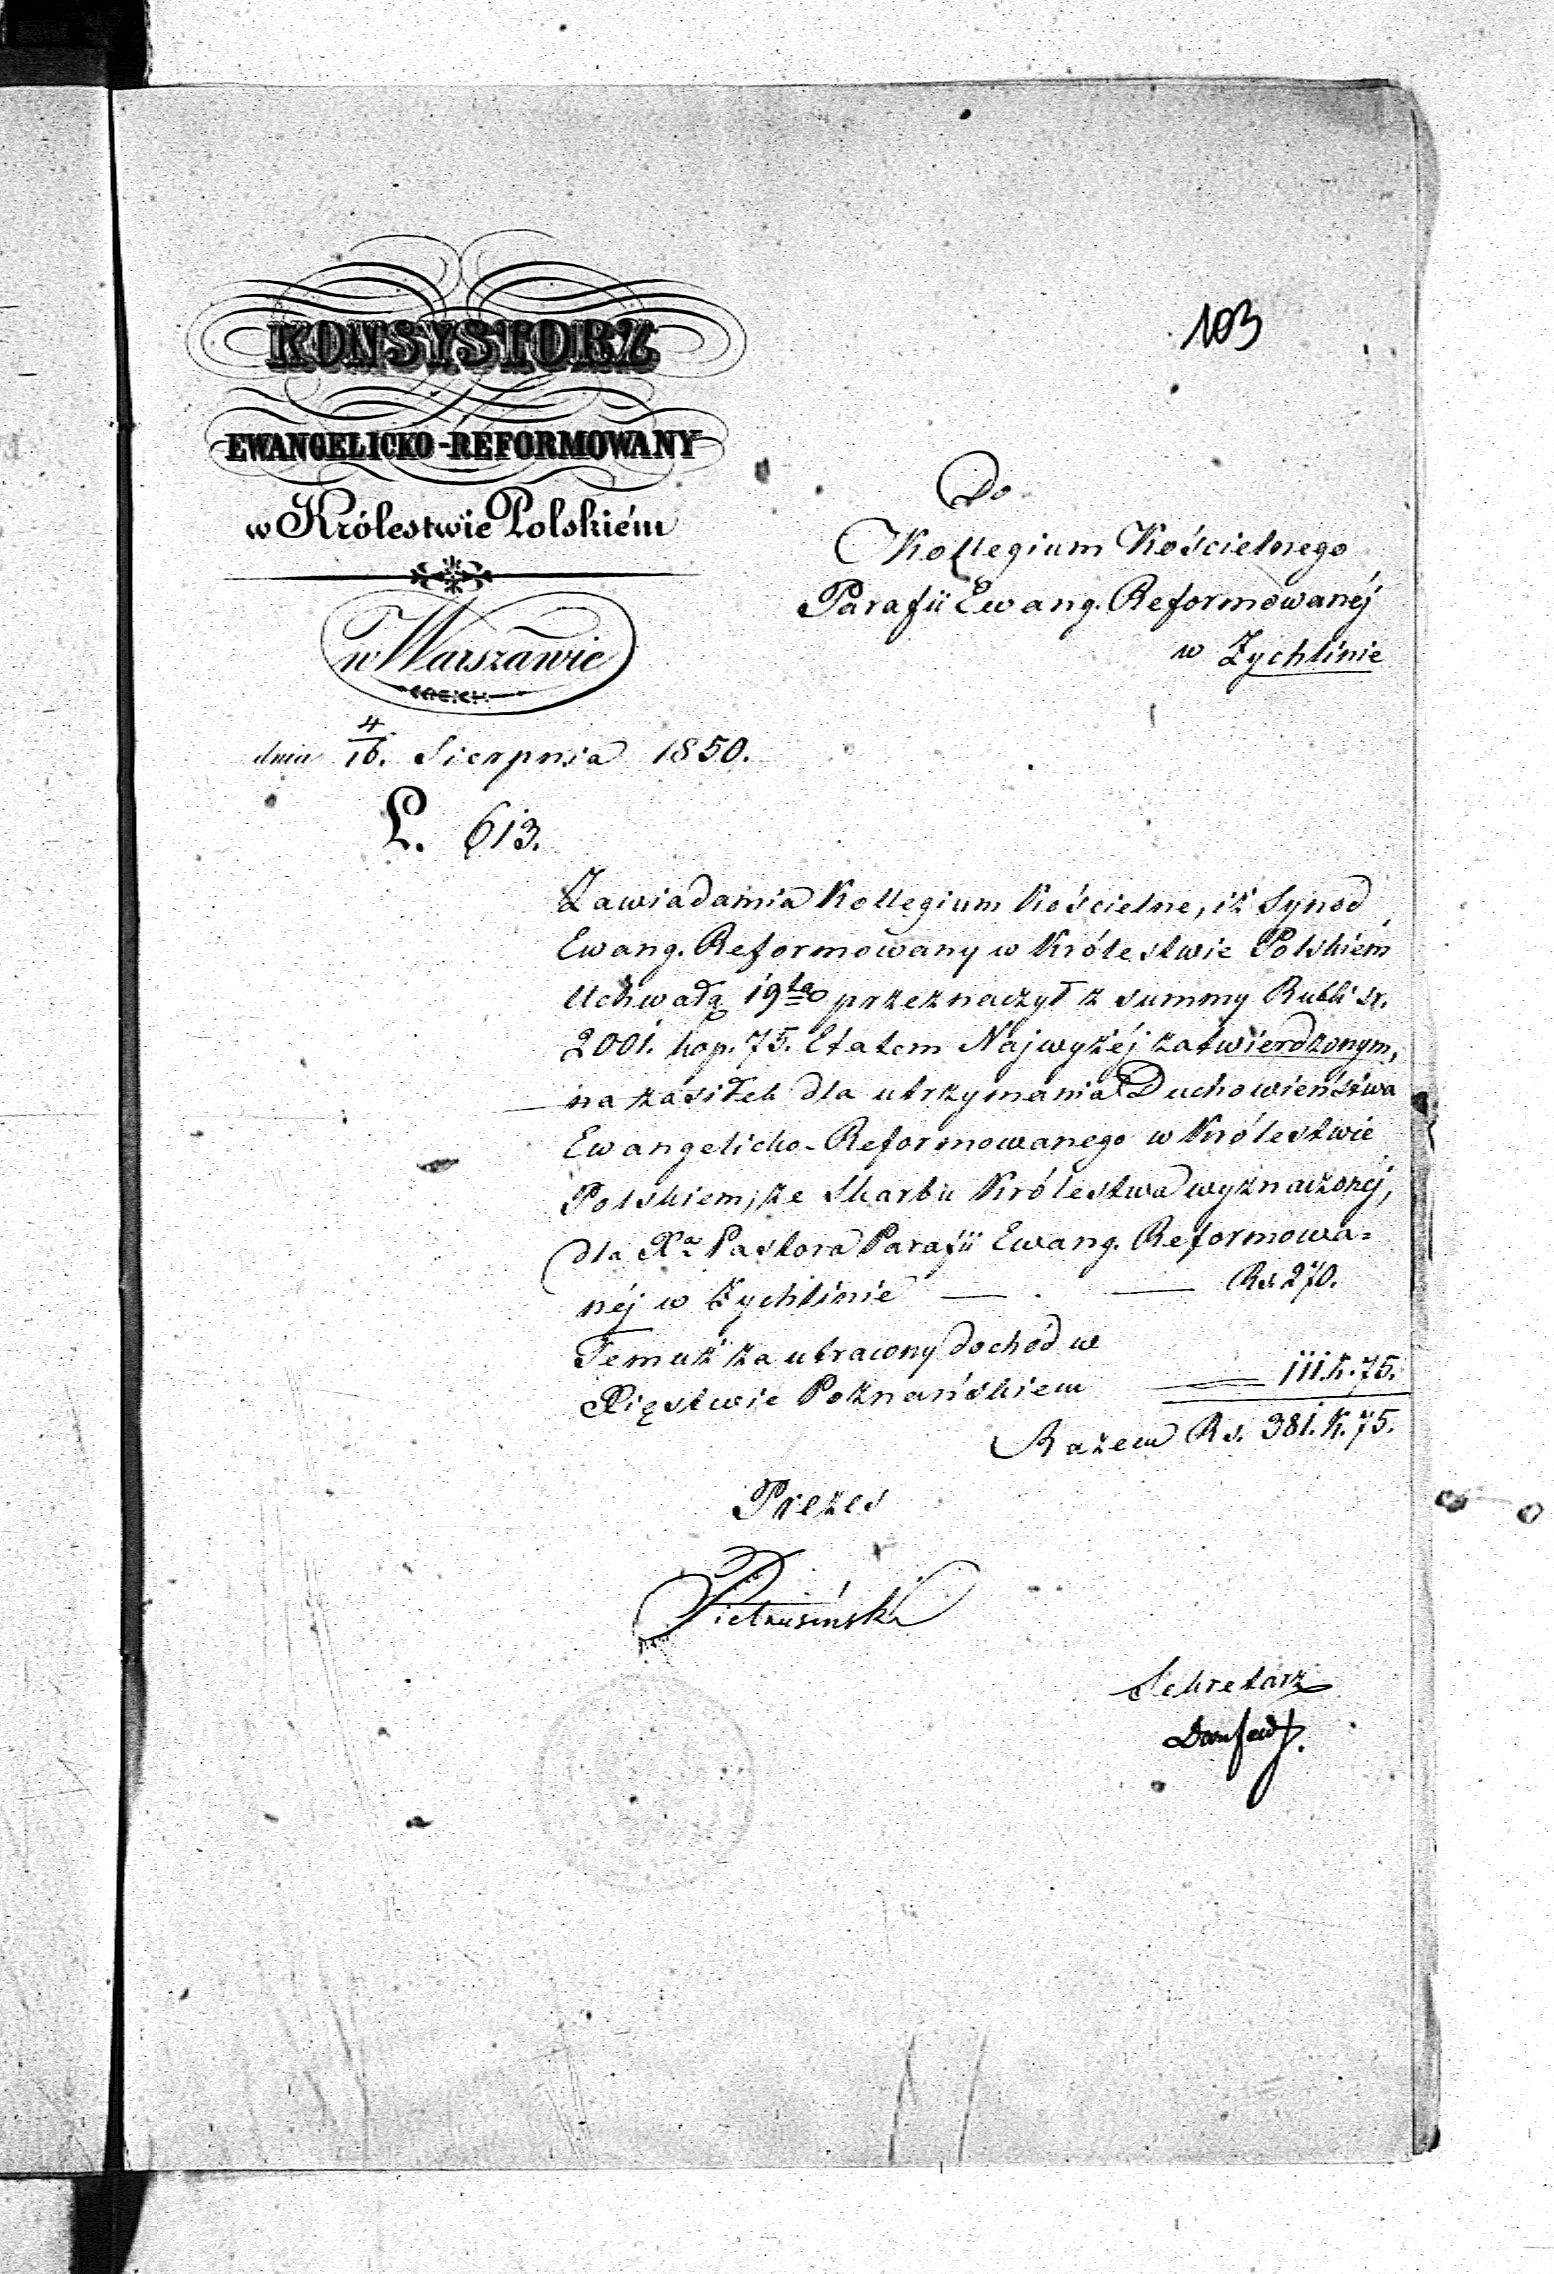 103
KONSYSTORZ
EWANGELICKO-REFORMOWANY
w Królestwie Polskiém
w Warszawie
dnia 4/16. Sierpnia 1850.
L. 613.
Do
Kollegium Kościelnego
Parafii Ewang. Reformowanéj
w Zychlinie
Zawiadamia Kollegium Kościelne, iż Synod
Ewang. Reformowany w Królestwie Polskiém
Uchwałą 19tą przeznaczył z summy Rubli sr.
2001. kop. 75. Etatem Najwyżéj zatwierdzonym,
na zasiłek dla utrzymania Duchowieństwa
Ewangelicko-Reformowanego w Królestwie
Polskiem, ze Skarbu Królestwa wyznaczonéj,
dla Xa Pastora Parafii Ewang. Reformowa=
néj w Zychlinie — . — Rs. 270.
Temuż za utracony dochód w
Xięstwie Poznańskiem — 111. K. 75.
Razem Rs. 381. K. 75.
Prezes
Pietrusiński
Sekretarz